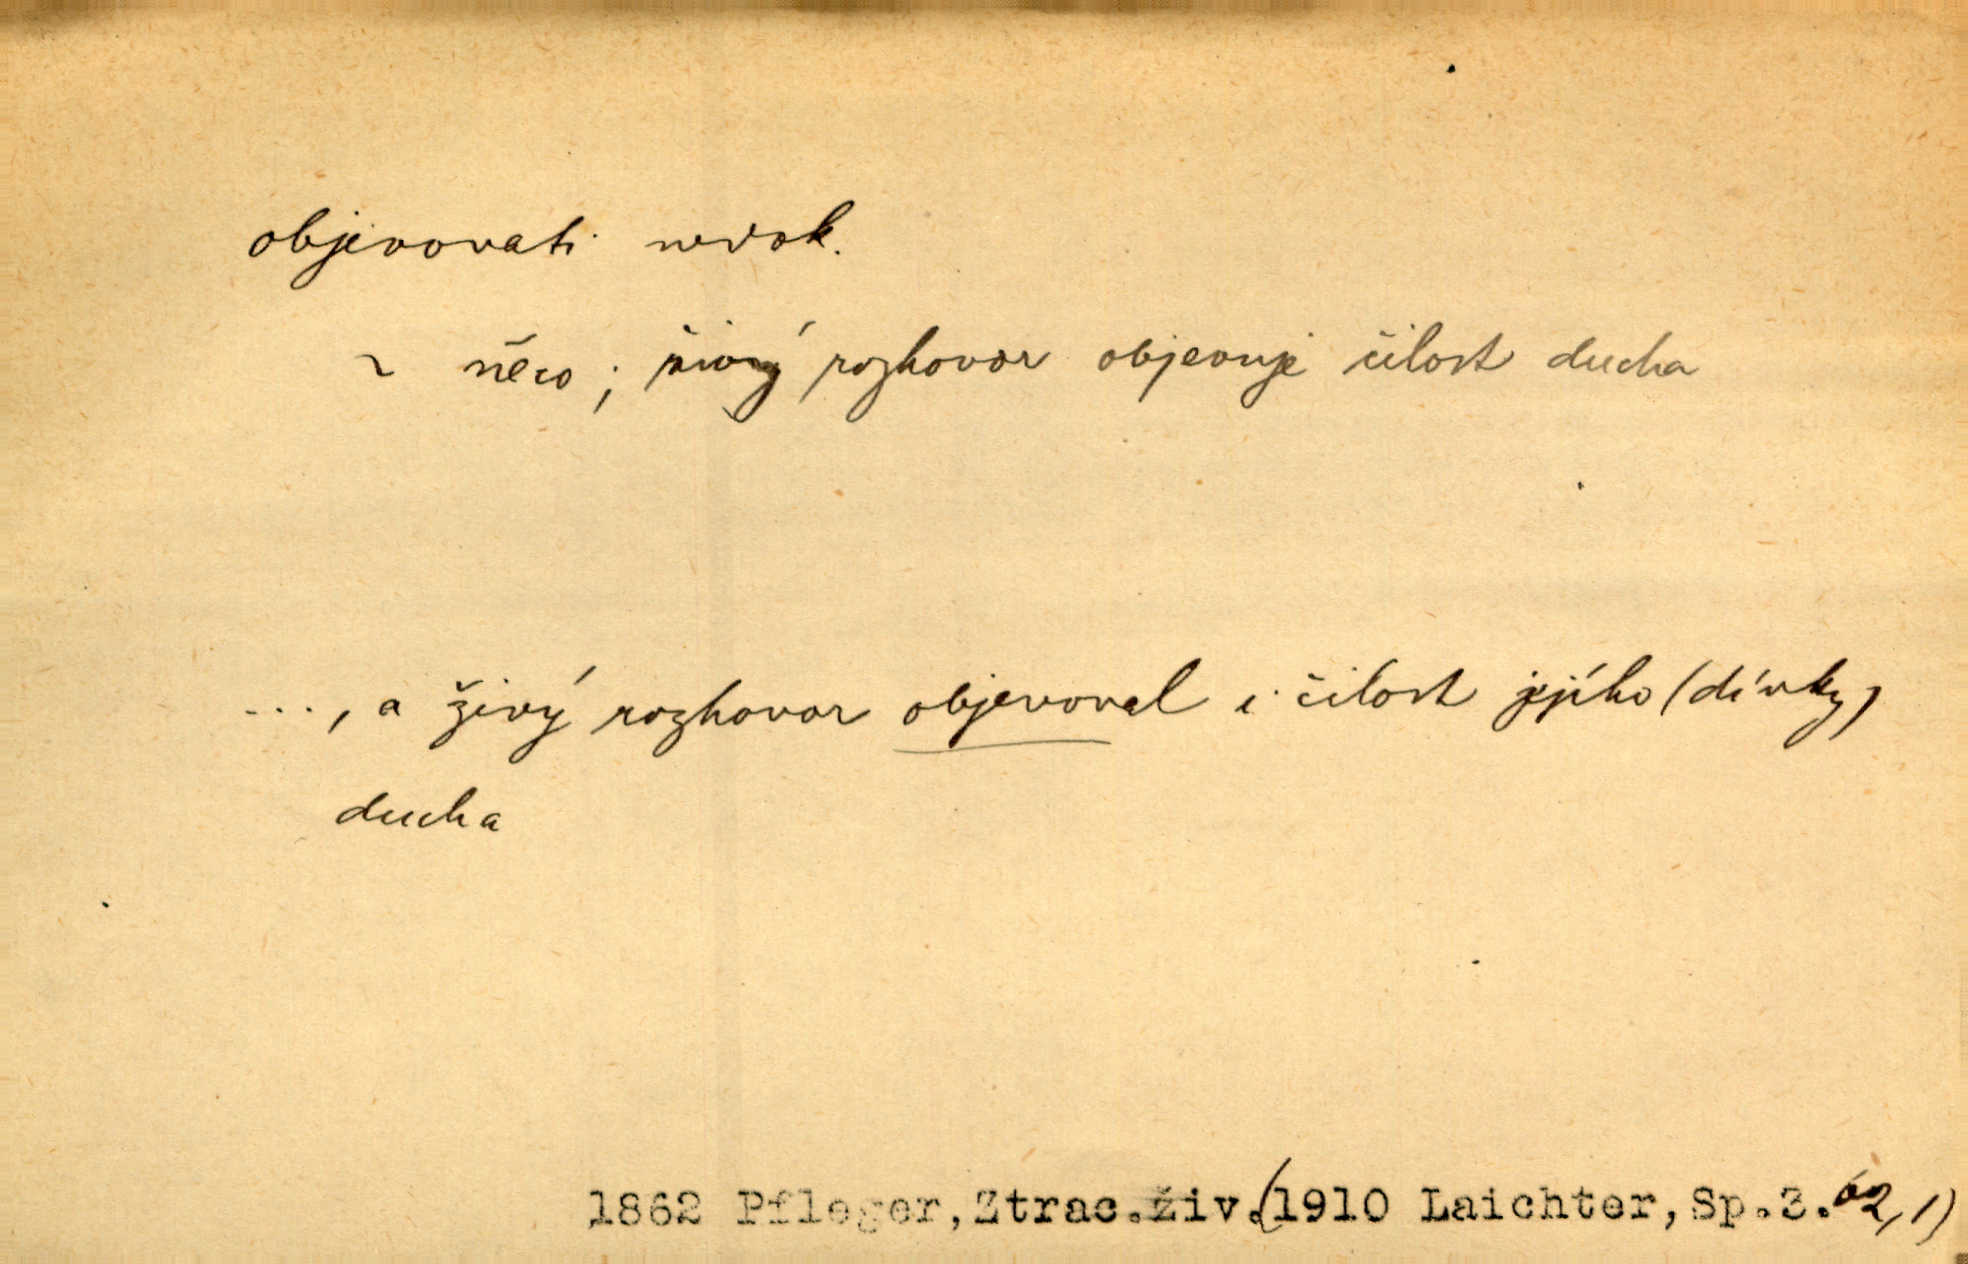 objevovati nedok.
~ něco; živý rozhovor objevuje čilost ducha
..., a živý rozhovor objevoval i čilost jejího (dívky)
ducha
1862 Pfleger, Ztrac.živ.(1910 Laichter, Sp.3.62,1)